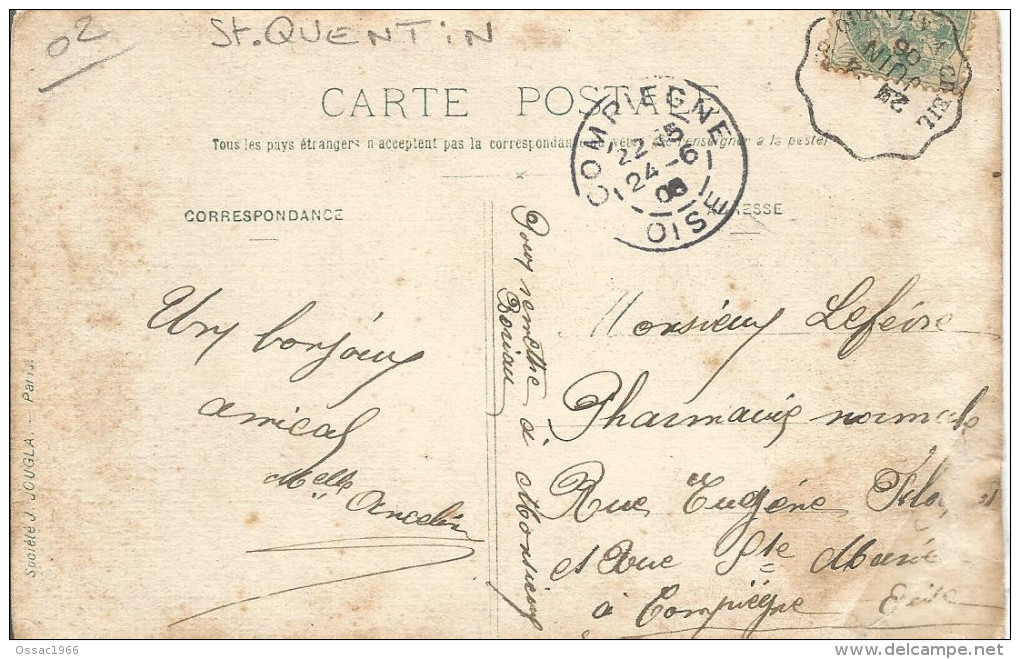 02
St. QUENTIN
CARTE POSTALE
Tous les pays étrangers n'acceptent pas la correspondance se renseigner à la poste
COMPIEGNE
22 15
24 - 6
OISE
QUENTIN A CREIL
JUIN
06
CORRESPONDANCE
ADRESSE
Un bonjour
amical
Melle Ancelin
Pour remettre à Monsieur
Monsieur Lefèvre
Pharmacie normale
Rue Eugène
et Rue Ste Marie
à Compiègne Oise
Société J. JOUGLA. — Paris.
Ossac1966
delcampe.net